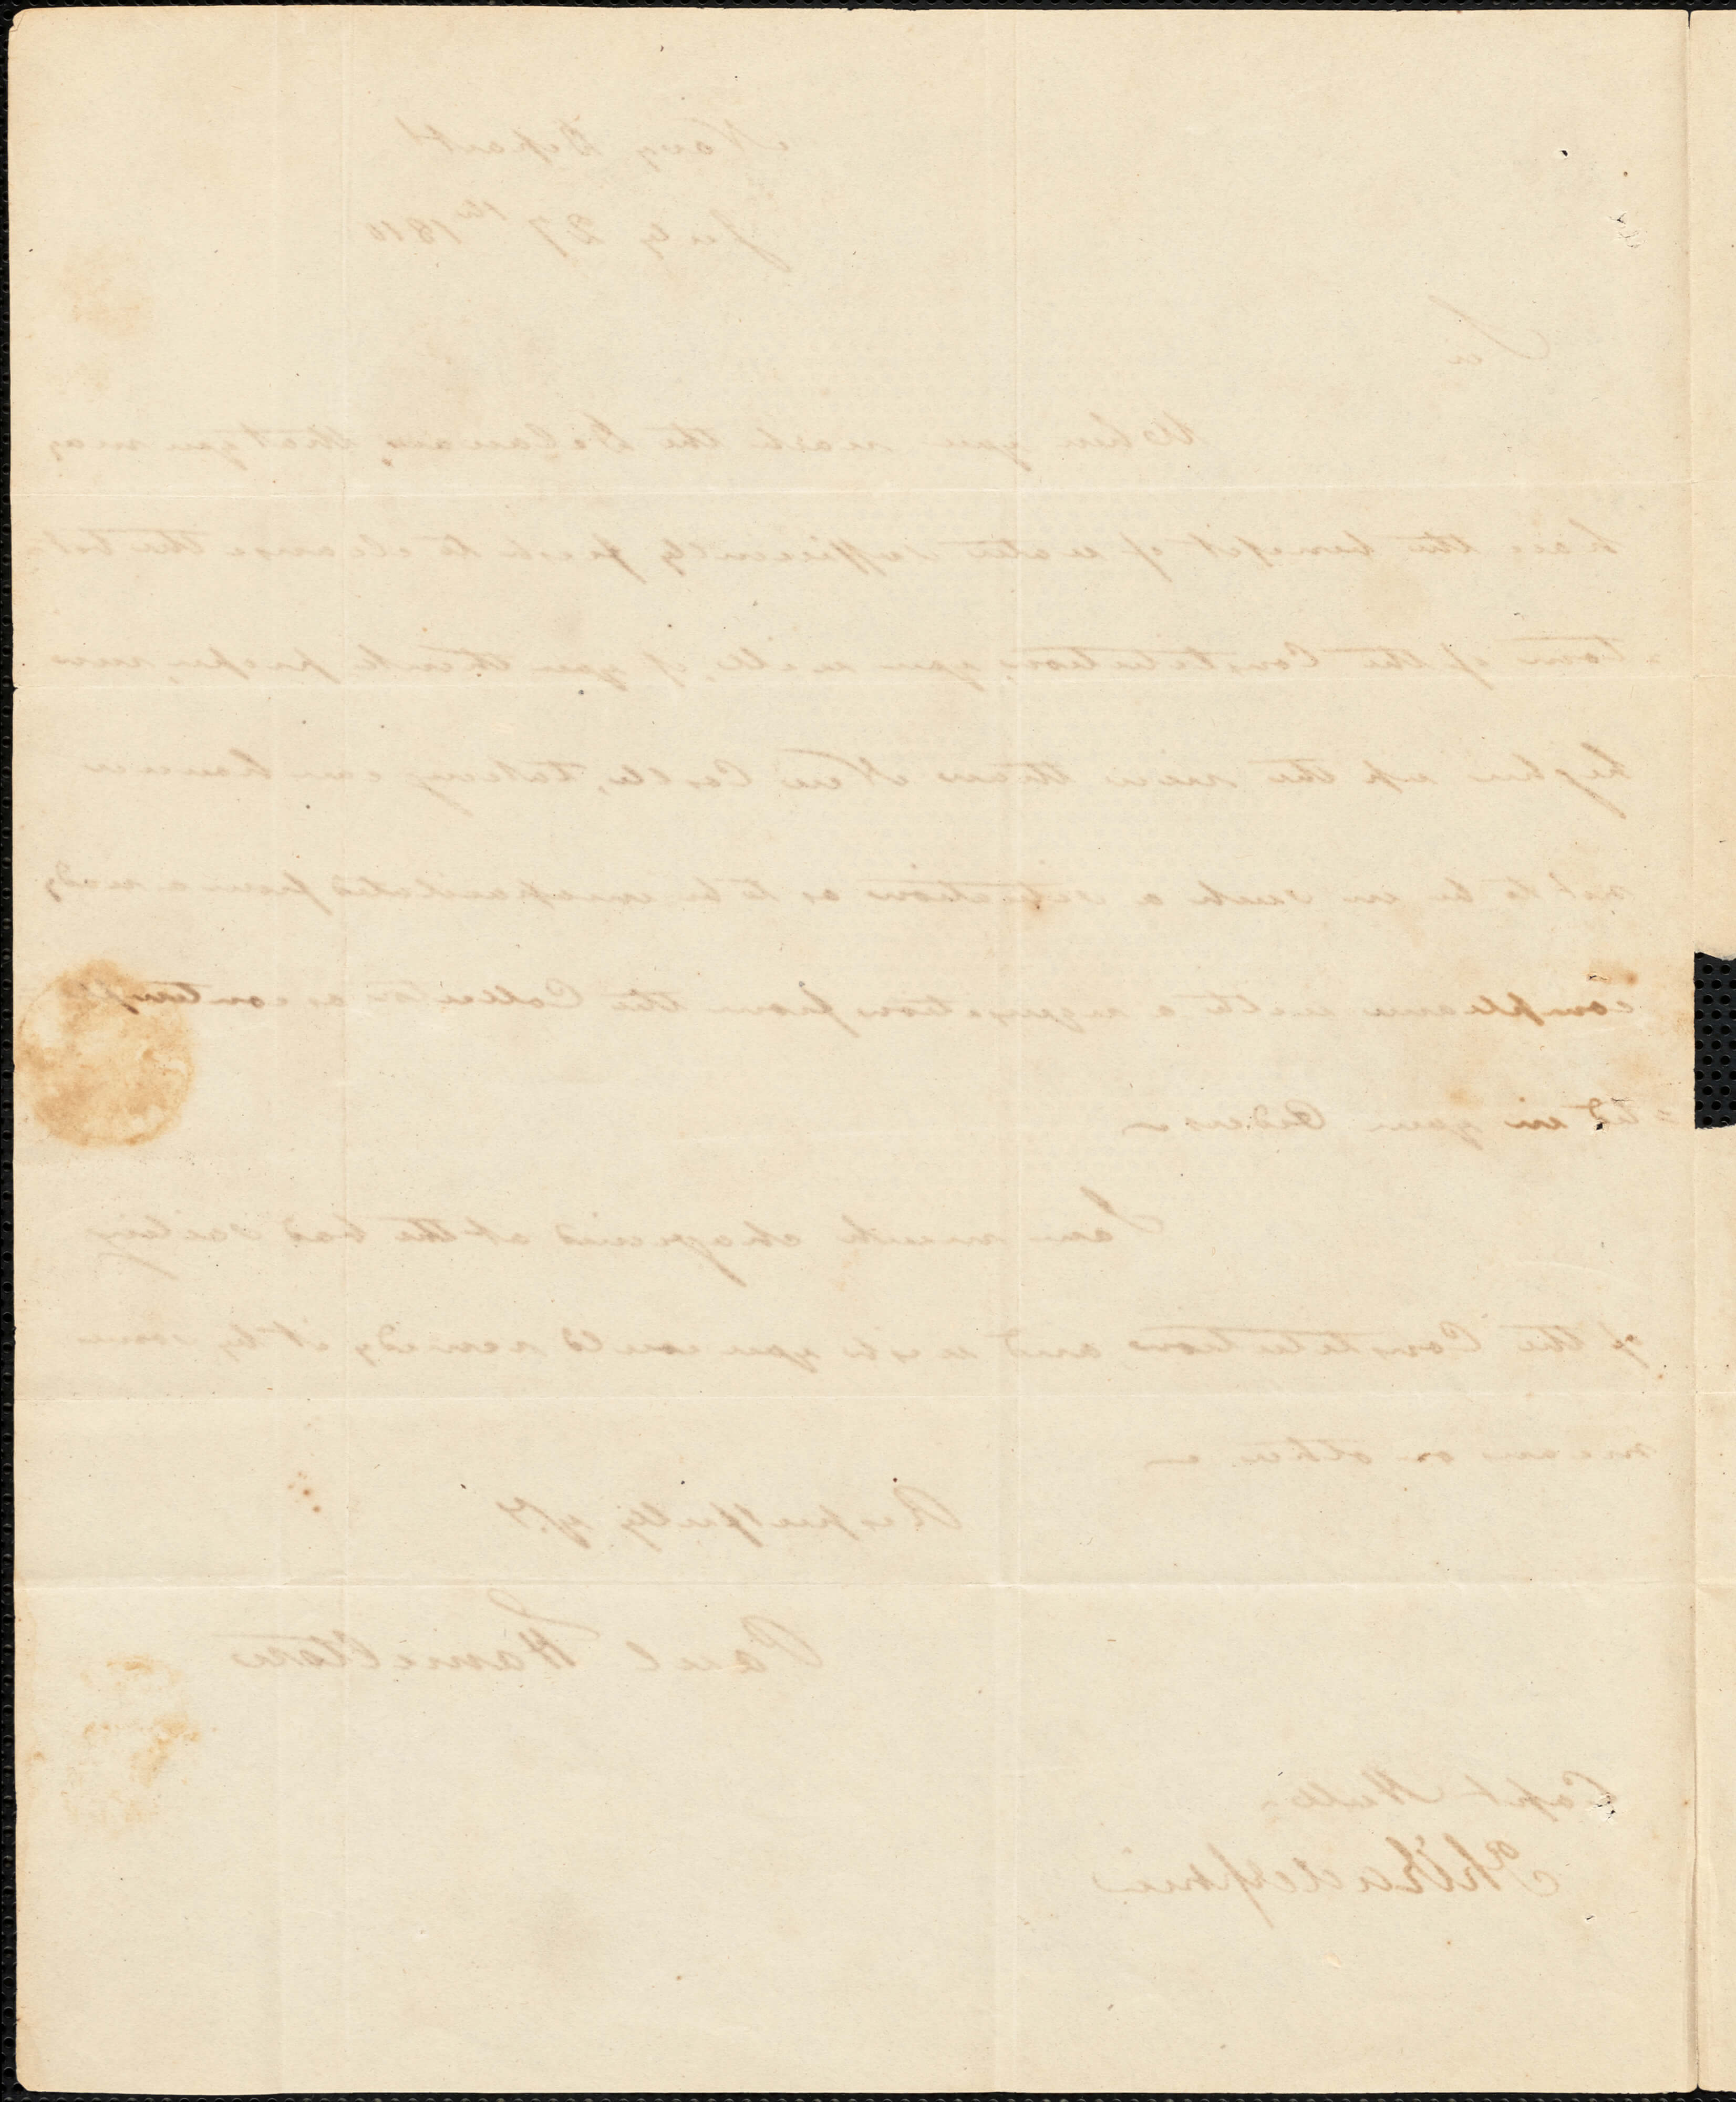 Navy Depart
July 27th 1810
Sir
When you reach the Delaware, that you may
have the benefit of water sufficiently fresh to cleanse the bot
=tom of the Constitution, you will, if you think proper, run
higher up the river than New Castle, taking care however
not to be in such a situation as to be from a ready
compliance with a requisition from the Collector as contempla
=ted in your Orders—
I am much chagrined at the bad sailing
of the Constitution, and wish you could remedy it by some
means or other—
Respectfully
Paul Hamilton
Capt Hull,
Philadelphia